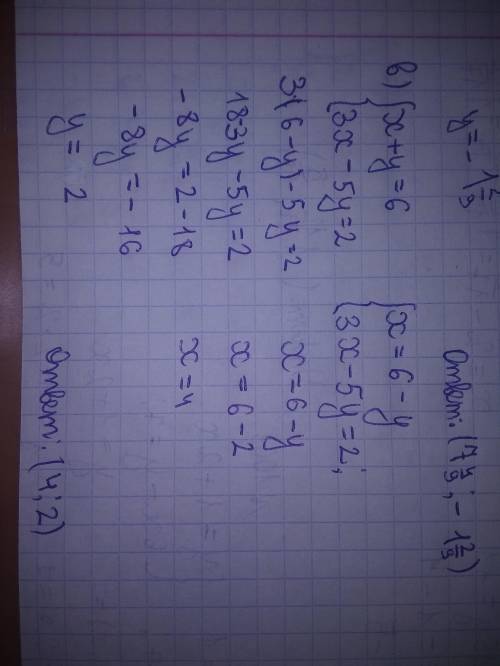 y = -1 2/9    Ответ: (7 2/9; -1 2/9)
в) { x + y = 6    { x = 6 - y
{ 3x - 5y = 2    { 3x - 5y = 2;
3(6 - y) - 5y = 2    x = 6 - y
18-3y - 5y = 2    x = 6 - 2
-8y = 2 - 18    x = 4
-8y = -16
y = 2    Ответ: (4; 2)